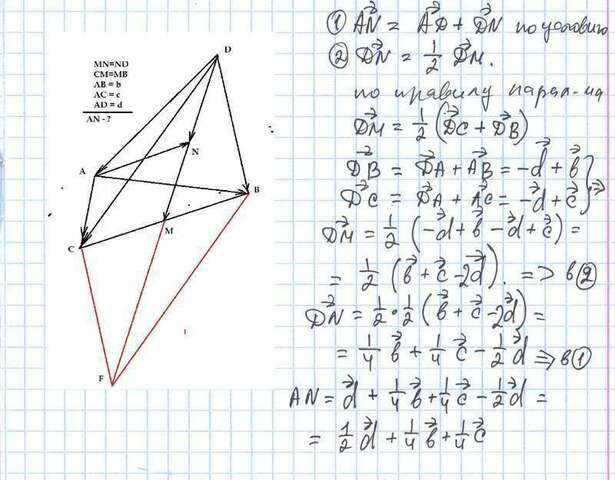 MN=ND
CM=MB
AB = b
AC = c
AD = d
AN - ?
D
A
N
B
C
M
F
① A⃗N = A⃗D + D⃗N по условию
② D⃗N = 1/2 D⃗M.
по правилу парал-ма
D⃗M = 1/2 (D⃗C + D⃗B)
D⃗B = D⃗A + A⃗B = -d⃗ + b⃗
D⃗C = D⃗A + A⃗C = -d⃗ + c⃗ } ⇒
D⃗M = 1/2 (-d⃗ + b⃗ - d⃗ + c⃗) =
= 1/2 (b⃗ + c⃗ - 2d⃗). => в ②
D⃗N = 1/2 · 1/2 (b⃗ + c⃗ - 2d⃗) =
= 1/4 b⃗ + 1/4 c⃗ - 1/2 d⃗ => в ①
AN = d⃗ + 1/4 b⃗ + 1/4 c⃗ - 1/2 d⃗ =
= 1/2 d⃗ + 1/4 b⃗ + 1/4 c⃗